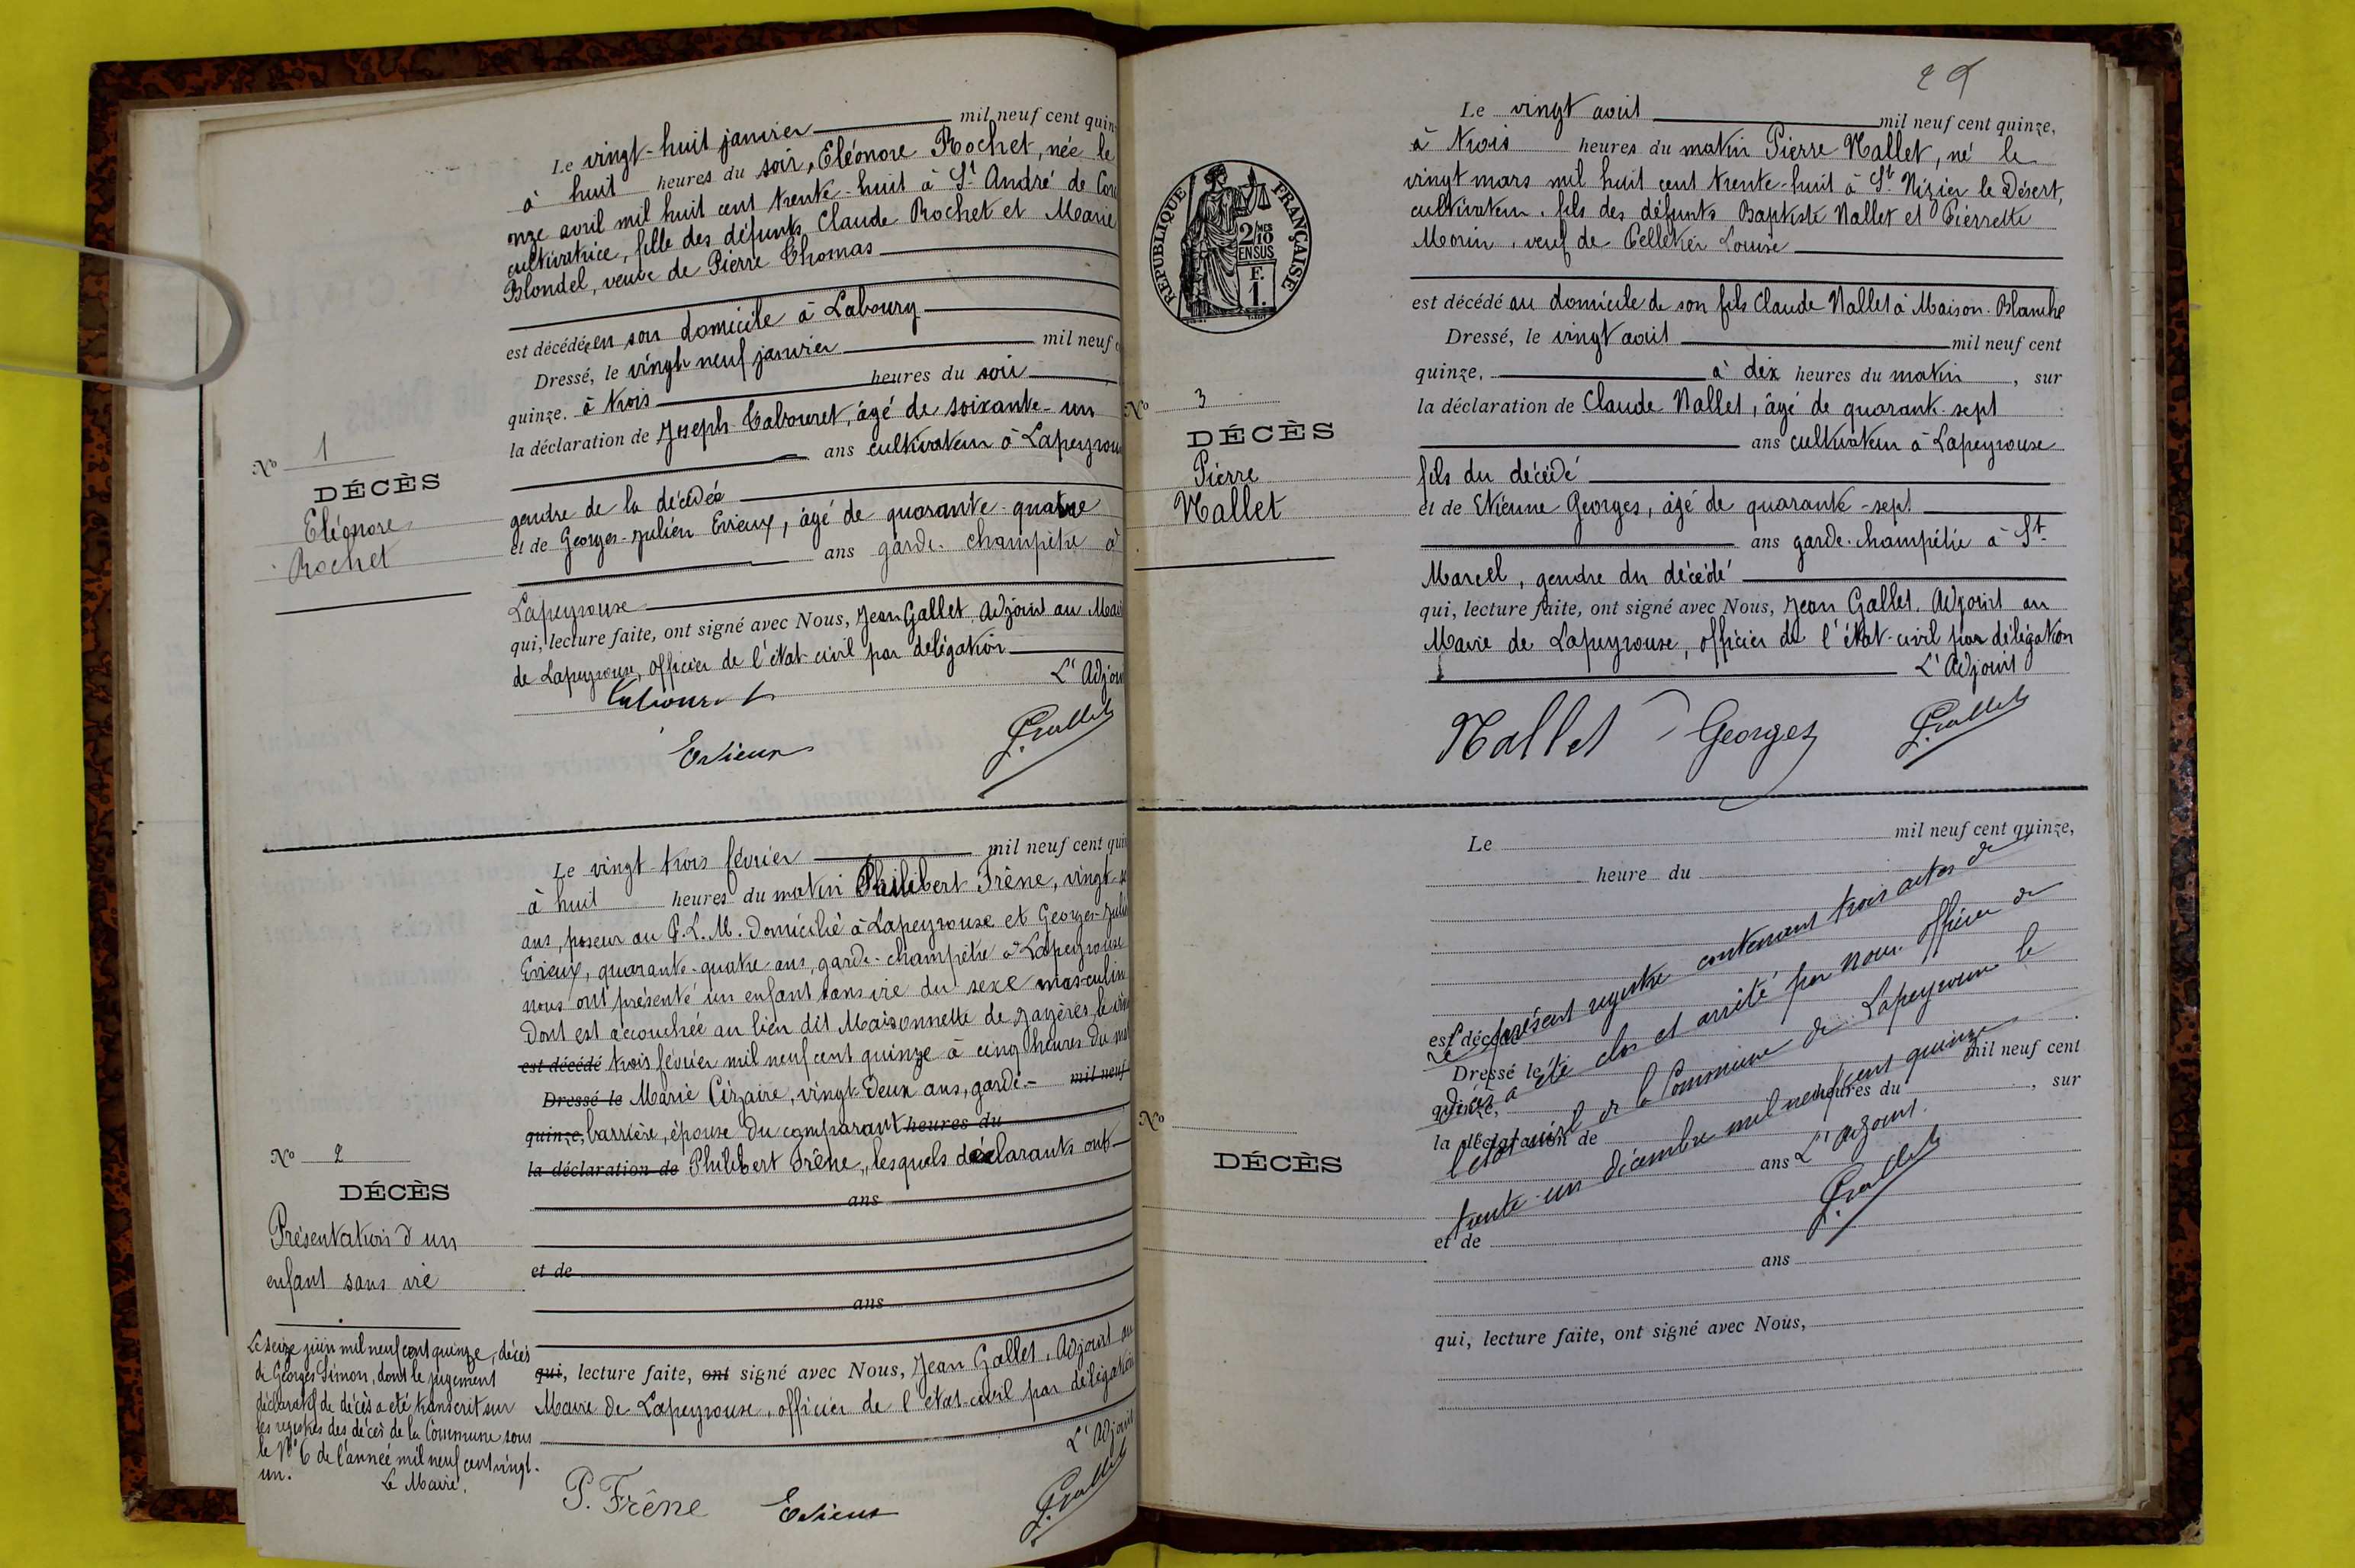 Le vingt-huit janvier mil neuf cent quin
à huit heures du soir, Eléonore Rochet, née le
onze avril mil huit cent trente-huit à St André de Cor
cultivatrice, fille des défunts Claude Rochet et Marie
Blondel, veuve de Pierre Thomas
est décédée en son domicile à Laboury
Dressé, le vingt neuf janvier mil neuf
quinze. à trois heures du soir
la déclaration de Joseph Tabouret, âgé de soixante-un
ans cultivateur à Lapeyrou
gendre de la décédée
et de Georges-Julien Evieux, âgé de quarante-quatre
ans garde-champêtre à
Lapeyrouse
qui, lecture faite, ont signé avec Nous, Jean Gallet Adjoint au Mai
de Lapeyrouse, officier de l'état-civil par délégation
L'Adjoin
Tabouret
Evieux
J. Gallet
No 1
DÉCÈS
Eléonore
Rochet
Le vingt-trois février mil neuf cent quin
à huit heures du matin Philibert Frêne, vingt-
ans, poseur au P.L.M. domicilié à Lapeyrouse et Georges-Juli
Evieux, quarante-quatre ans, garde-champêtre à Lapeyrouse
nous ont présenté un enfant sans vie du sexe masculin
dont est accouchée au lieu dit Maisonnette de Zayères, le vin
est décédé trois février mil neuf cent quinze à cinq heures du ma
Dressé le Marie Cizaire, vingt-deux ans, garde- mil neuf
quinze, barrière, épouse du comparant heures du
la déclaration de Philibert Frêne, lesquels déclarants ont
ans
et de
ans
qui, lecture faite, ont signé avec Nous, Jean Gallet, Adjoint au
Maire de Lapeyrouse, officier de l'état-civil par délégation
L'Adjoint
P. Frêne
Evieux
J. Gallet
No 2
DÉCÈS
Présentation d'un
enfant sans vie
Le seize juin mil neuf cent quinze, décès
de Georges Simon, dont le jugement
déclaratif de décès a été transcrit sur
les registres des décès de la Commune sous
le No 6 de l'année mil neuf cent vingt-
un.
Le Maire,
29
Le vingt août mil neuf cent quinze,
à trois heures du matin Pierre Nallet, né le
vingt mars mil huit cent trente-huit à St Nizier le Désert,
cultivateur, fils des défunts Baptiste Nallet et Pierrette
Morin, veuf de Pelletier Louise
est décédé au domicile de son fils Claude Nallet à Maison-Blanche
Dressé, le vingt août mil neuf cent
quinze, à dix heures du matin, sur
la déclaration de Claude Nallet, âgé de quarante-sept
ans cultivateur à Lapeyrouse
fils du décédé
et de Etienne Georges, âgé de quarante-sept
ans garde-champêtre à St
Marcel, gendre du décédé
qui, lecture faite, ont signé avec Nous, Jean Gallet, Adjoint au
Maire de Lapeyrouse, officier de l'état-civil par délégation
L'Adjoint
Nallet
Georges
J. Gallet
RÉPUBLIQUE FRANÇAISE
2/10 MES
EN SUS
F.
1.
No 3
DÉCÈS
Pierre
Nallet
Le mil neuf cent quinze,
heure du
est décédé
Dressé le mil neuf cent
quinze, heures du , sur
la déclaration de
ans
et de
ans
qui, lecture faite, ont signé avec Nous,
Le présent registre contenant trois actes de
décès a été clos et arrêté par nous officier de
l'état civil de la Commune de Lapeyrouse le
trente-un décembre mil neuf cent quinze
L'Adjoint
J. Gallet
No
DÉCÈS